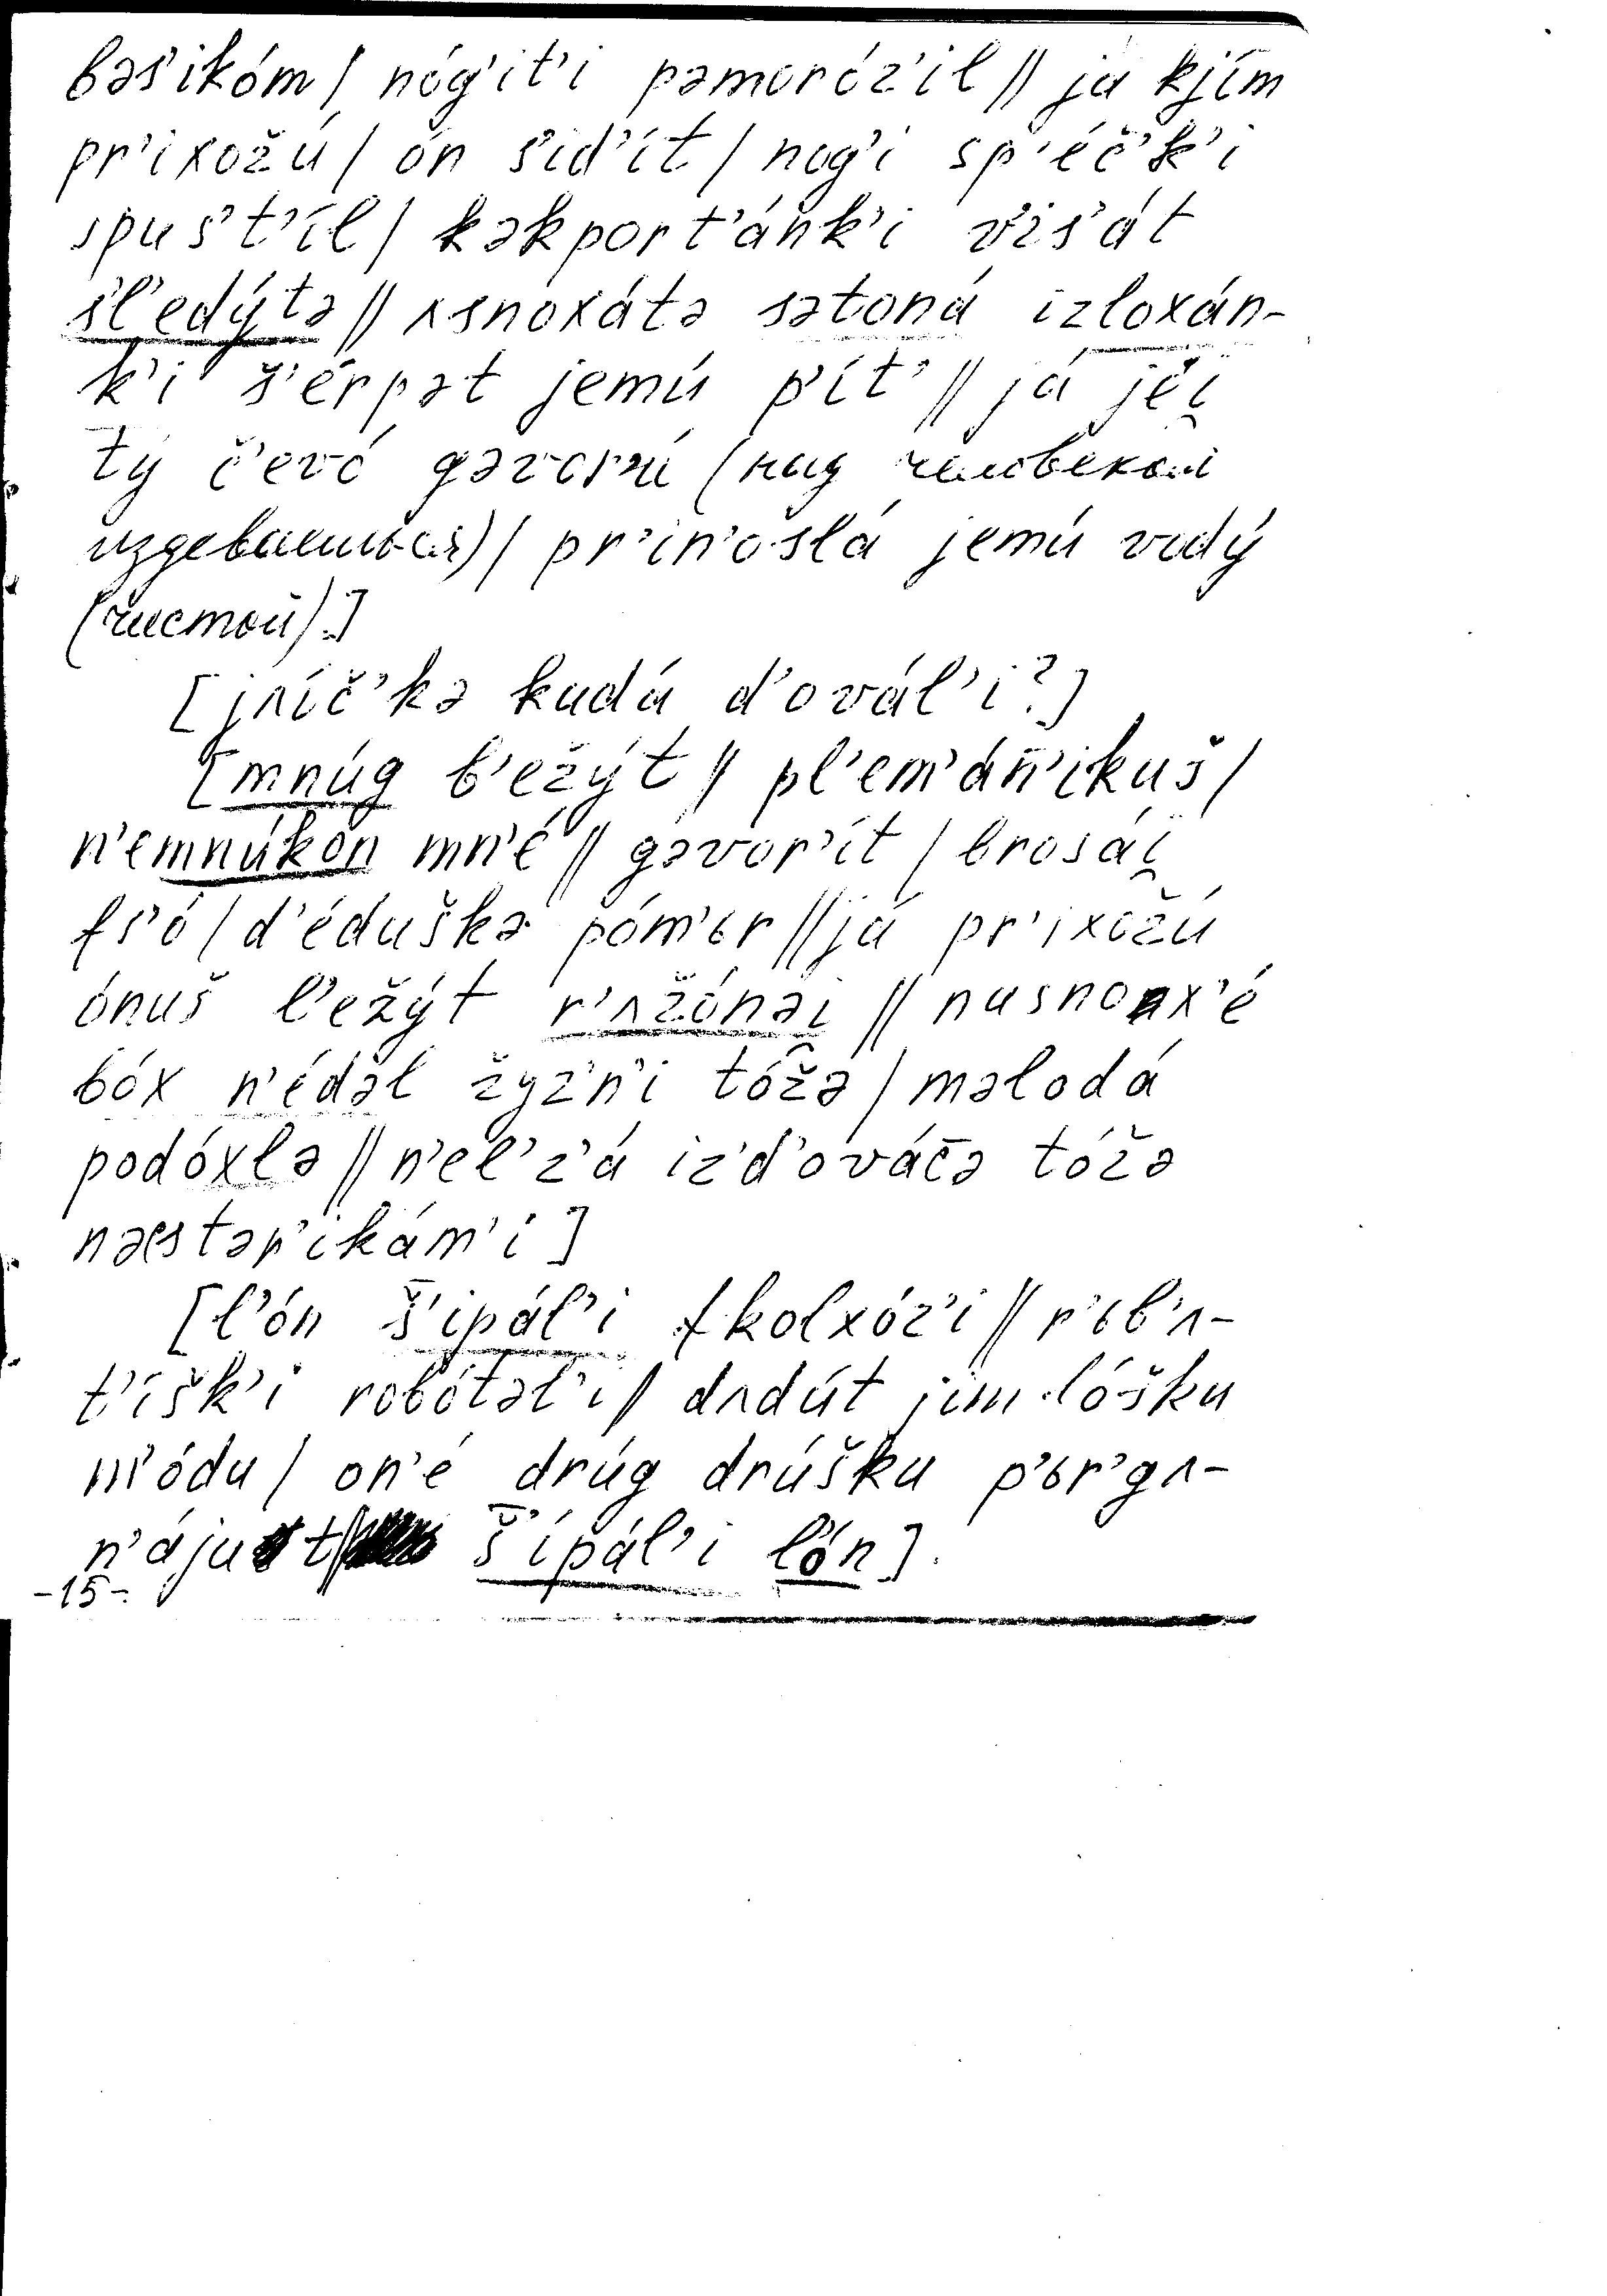 bəs'ikóm / nóg'it'i pəmoróz'il // já kjím
pr'ixožú / ón s'id'ít / nog'i sp'éč'k'i
spus't'íl / kəkport'ánk'i v'is'át
s'l'edýtə // ʌsnoxátə sətoná izloxán-
k'i š'érpət jemú p'ít' // já jéi̯
tý č'evó gəvor'ú (над человеком
издеваешься) / pr'in'oslá jemú vodý
(чистой).]
[jʌíč'kə kudá d'ovál'i?]
[mnúg b'ežýt // pl'em'án̄'ikuš /
n'emnúkon mn'é // gəvor'ít / brosái̯
fs'ó / d'éduškə póm'ьr // já pr'ixožú
ónuš l'ežýt r'ʌžónəi̯ // nusnox'é
bóx n'édəl žyz'n'i tóžə / məlodá
podóxlə // n'el'z'á iz'd'ovác̄ə tóžə
nəstər'ikám'i]
[l'ón š̄'ipál'i fkolxóz'i // r'ьb'ʌ-
t'íšk'i robótəl'i // dʌdút jim lóšku
m'ódu / on'é drúg drúšku p'ьr'gʌ-
n'ájut // š̄'ipál'i l'ón].
-15-